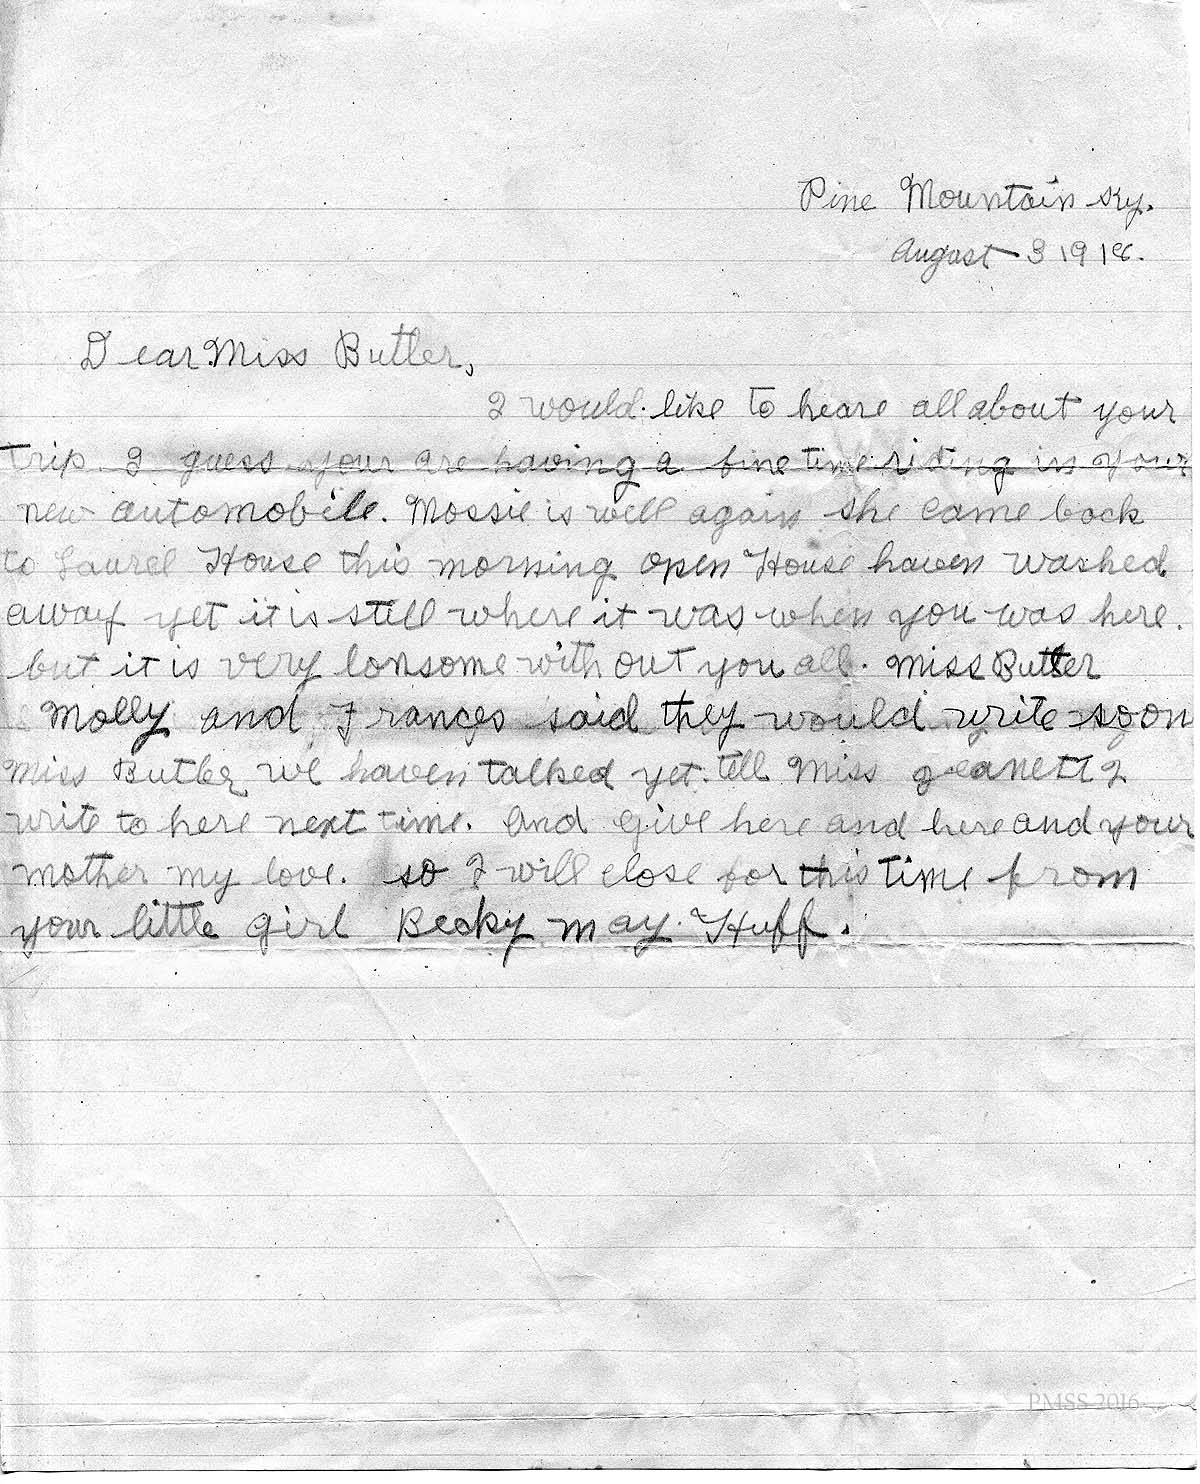 Pine Mountain Ky.
August 3 1918.
Dear Miss Butler,
I would like to heare all about your
trip. I guess your are having a fine time riding in your
new automobile. Mossie is well again she came back
to Laurel House this morning open House haven washed
away yet it is still where it was when you was here.
but it is very lonsome with out you all. Miss Butler
Molly and Frances said they would write soon
Miss Butler we haven talked yet. tell Miss geanett I
write to here next time. And give here and here and your
mother my love. so I will close for this time from
your little girl Becky may Huff.
PMSS 2016